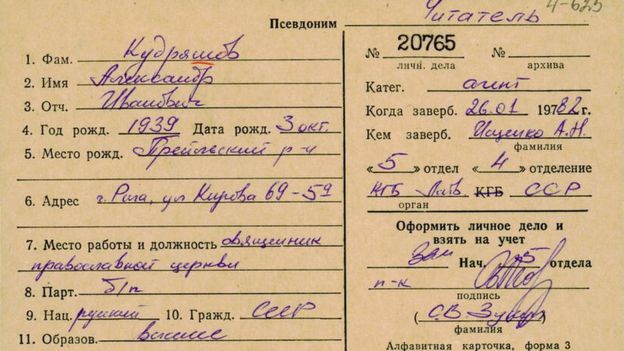 4-625
Псевдоним Читатель
1. Фам. Кудряшов
2. Имя Александр
3. Отч. Иванович
4. Год рожд. 1939 Дата рожд. 3 окт.
5. Место рожд. Прейльский р-н
6. Адрес г. Рига, ул Кирова 69-59
7. Место работы и должность священник
православной церкви
8. Парт. б/п
9. Нац. русский 10. Гражд. СССР
11. Образов. высшее
№ 20765 №
личн. дела архива
Катег. агент
Когда заверб. 26.01 197 82 г.
Кем заверб. Ищенко А.Н.
фамилия
«5» отдел «4» отделение
КГБ Латв КГБ ССР
орган
Оформить личное дело и
взять на учет
Зам Нач. 5 отдела
п-к
подпись
(С.В.
фамилия
Алфавитная карточка, форма 3